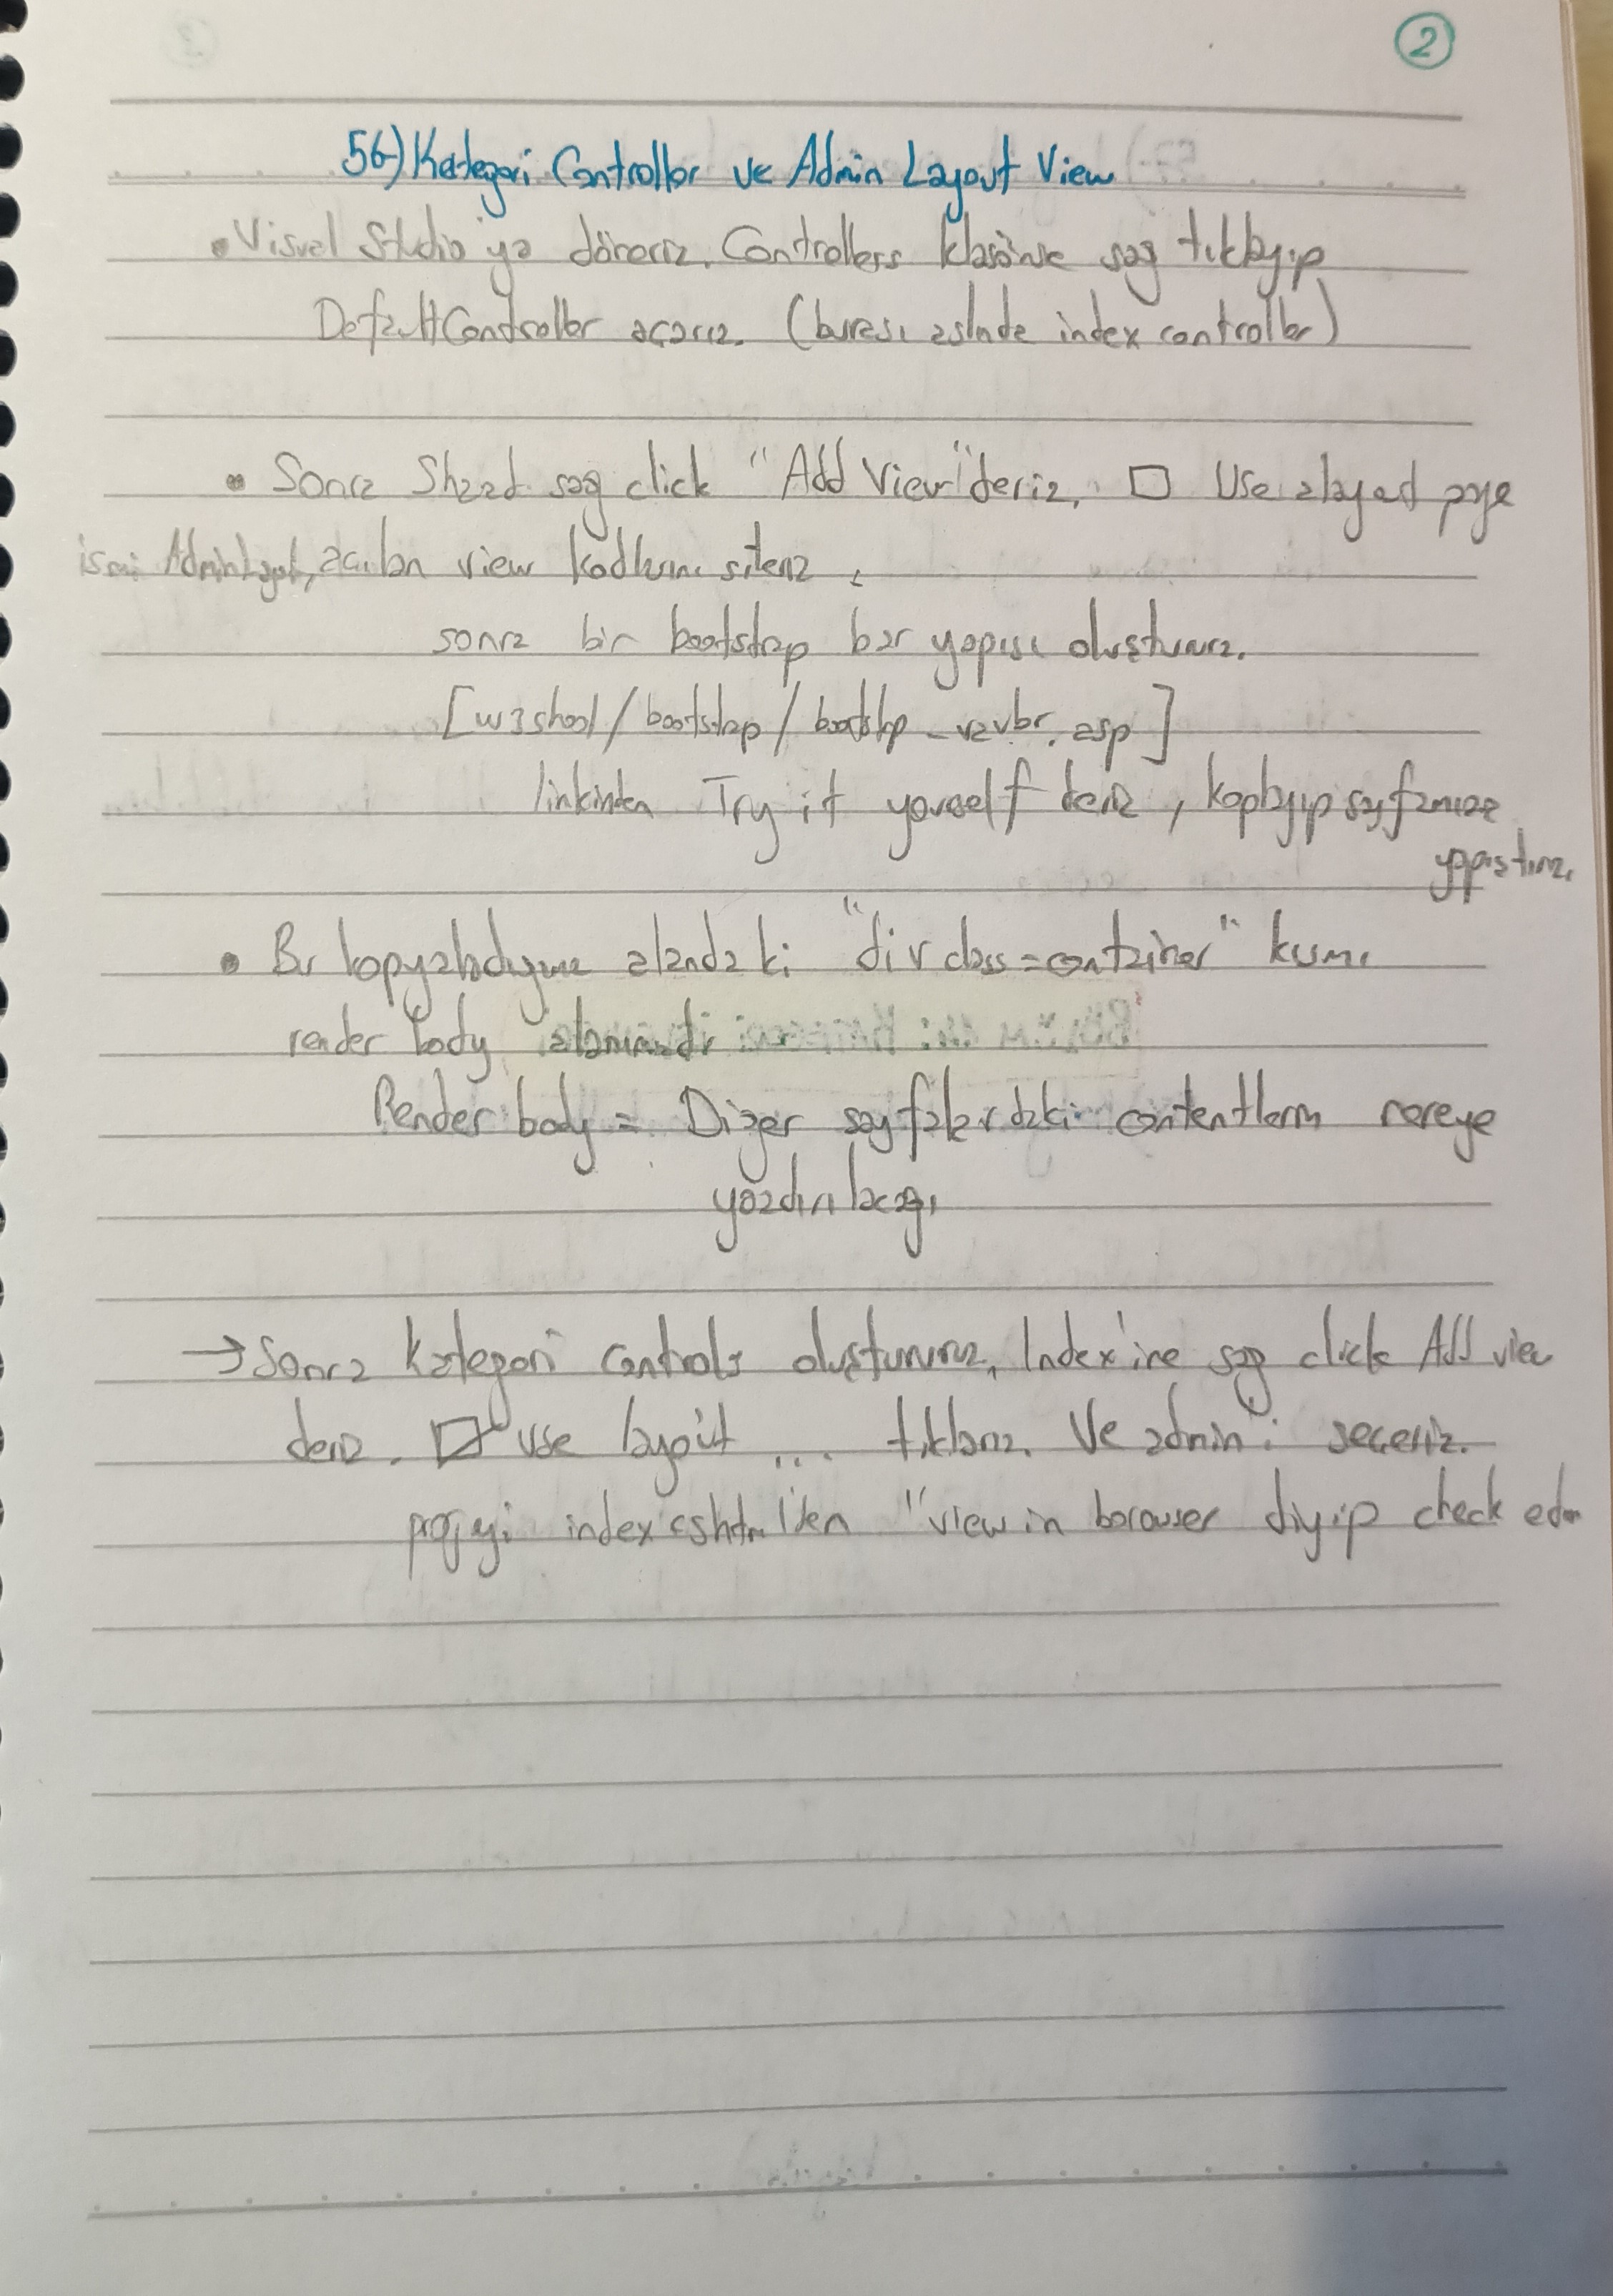 2
56) Kategori Controller ve Admin Layout View
• Visual Studio'ya döneriz. Controllers klasörüne sağ tıklayıp
DefaultController açarız. (burası aslında index controller)
• Sonra Shared sağ click "Add View" deriz. □ Use a layout page
ismi AdminLayout, açılan view kodlarını sileriz
sonra bir bootstrap bar yapısı oluştururuz.
[w3shool/bootstrap/bootstrp_navbr.asp]
linkinden Try it yourself deriz, kopyalayıp sayfamıza
yapıştırırız.
• Bu kopyaladığımız alandaki "div class=container" kısmı
render body alanımızdır
Render body = Diğer sayfalardaki contentlerin nereye
yazdırılacağı
→ Sonra Kategori controls oluştururuz, Index'ine sağ click Add view
deriz. ☑ use layout ... tıklarız. Ve admin'i seçeriz.
projeyi index cshtml'den "view in borowser diyip check eder